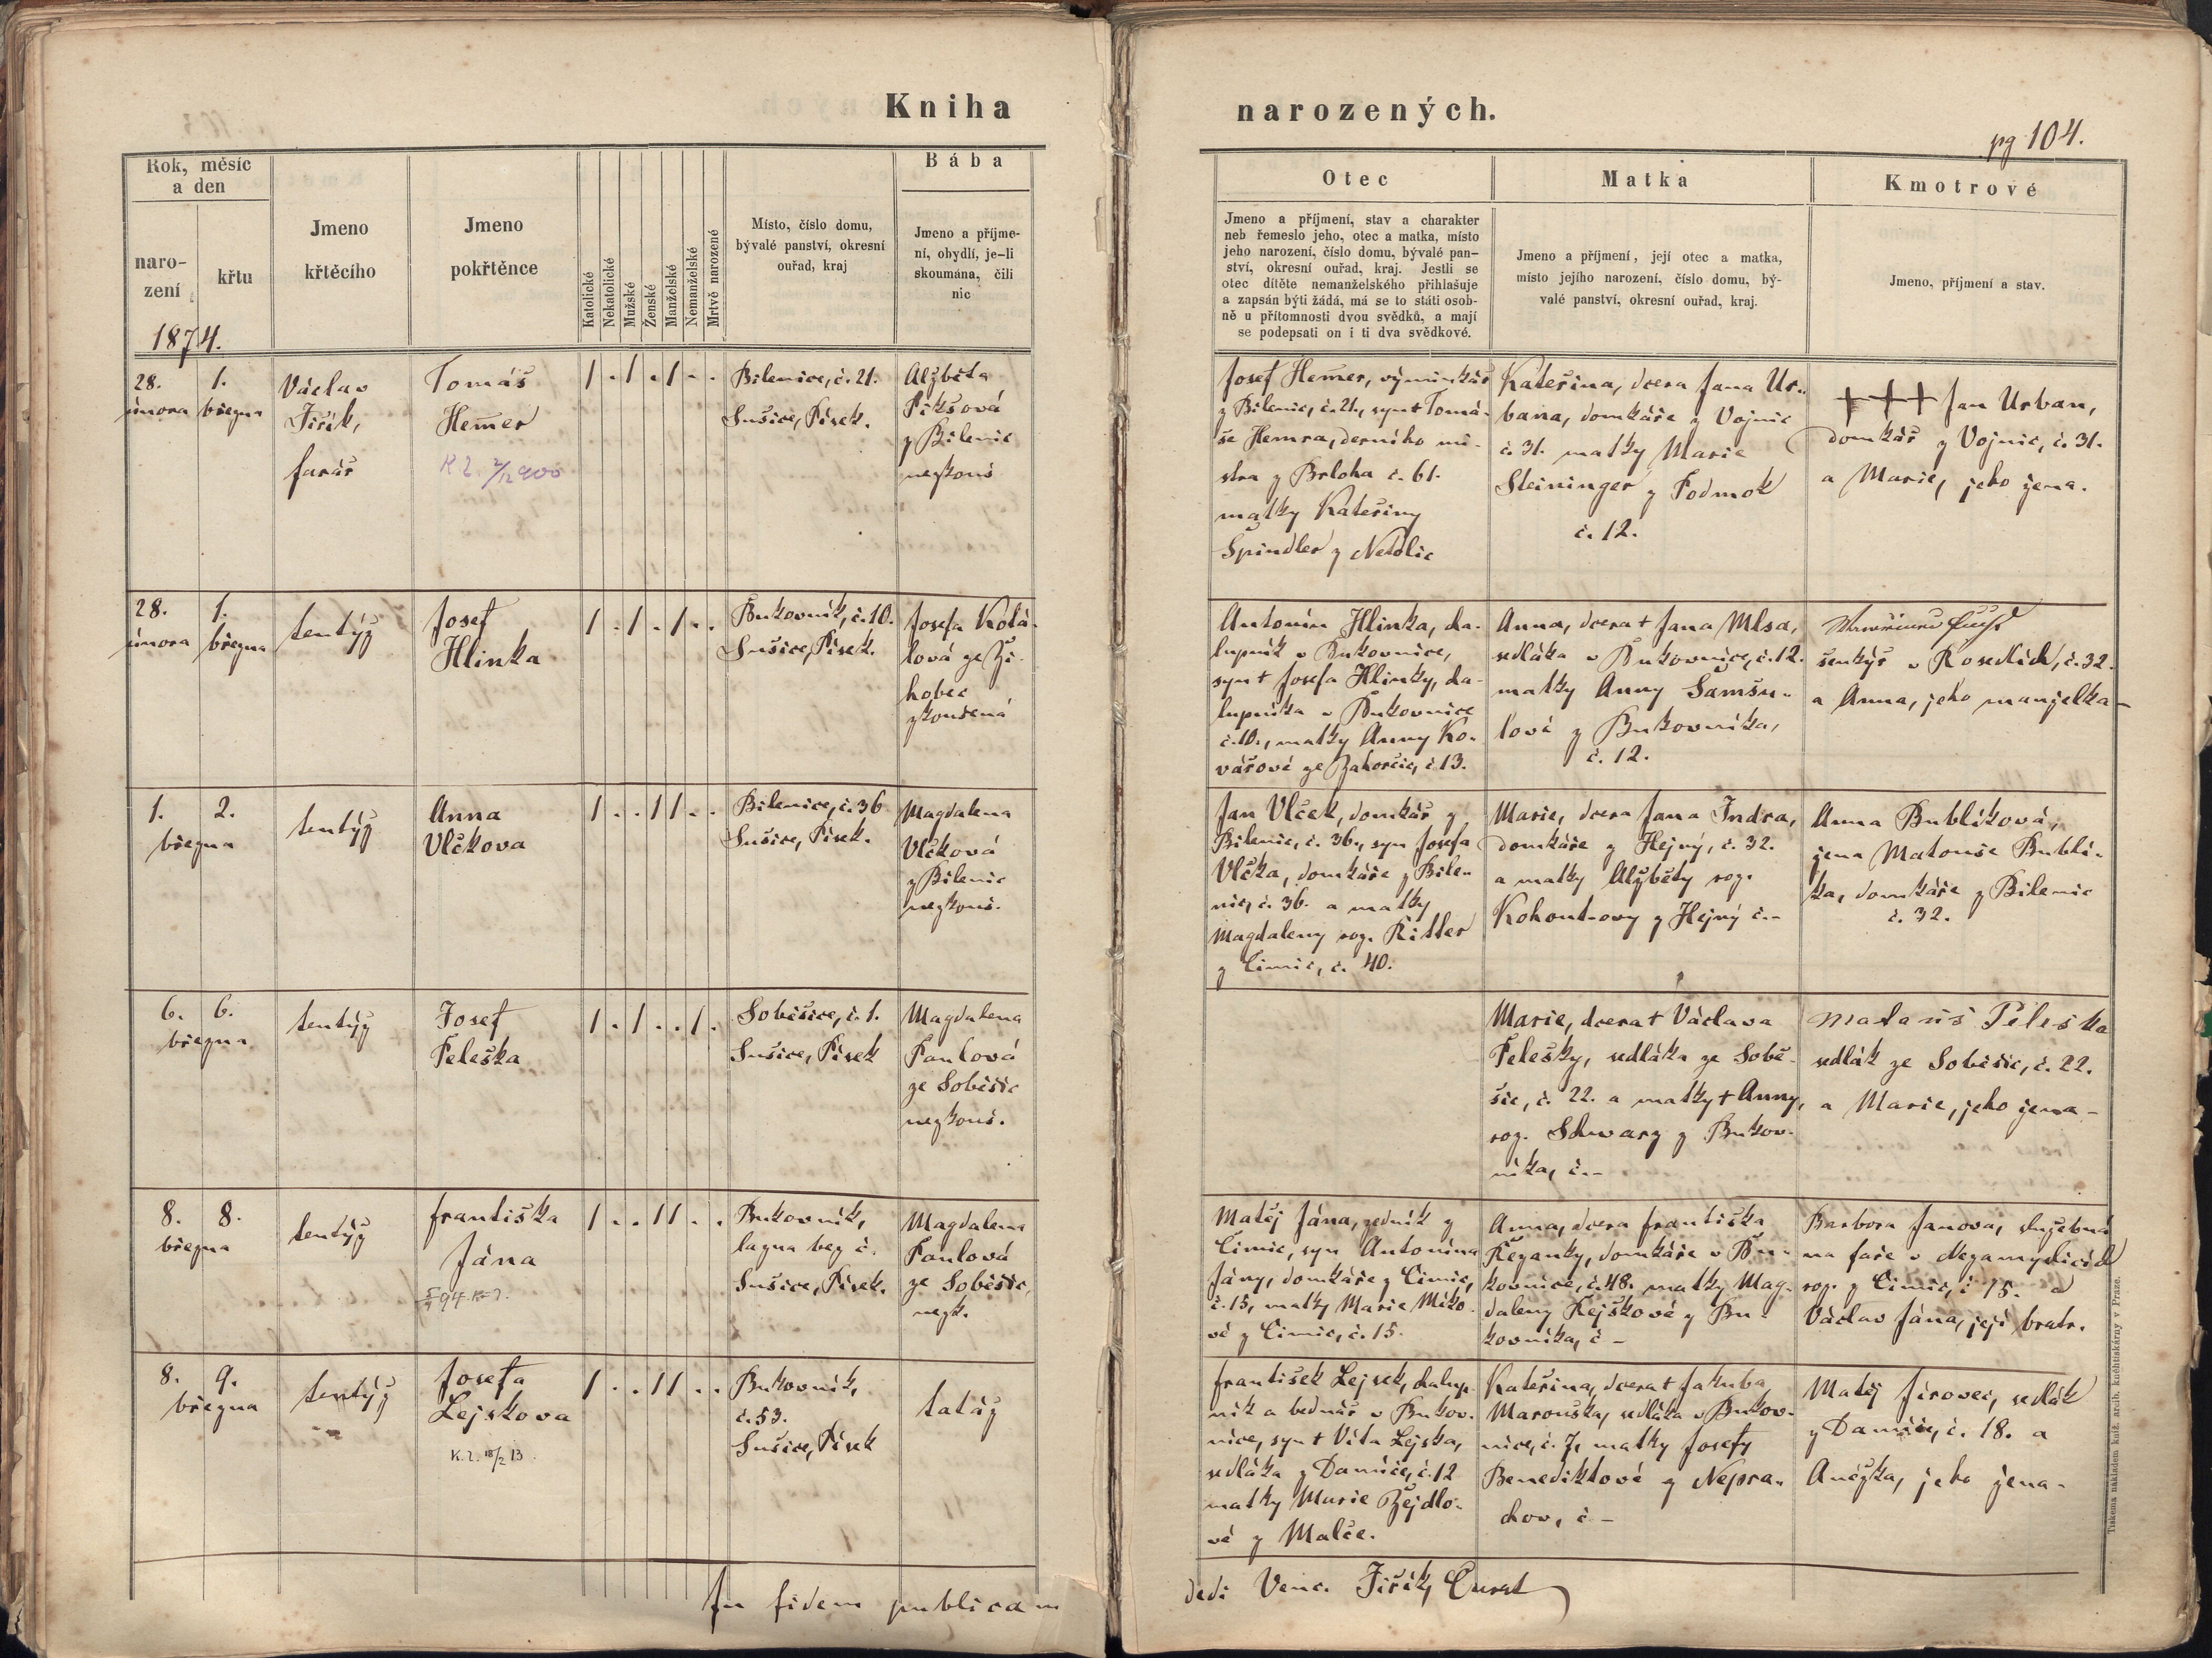 Kniha
narozených.
pg 104.
Rok, měsíc
a den
naro-
zení
křtu
Jmeno
křtěcího
Jmeno
pokřtěnce
Katolické
Nekatolické
Mužské
Ženské
Manželské
Nemanželské
Mrtvě narozené
Místo, číslo domu,
bývalé panství, okresní
ouřad, kraj
Bába
Jmeno a příjme-
ní, obydlí, je-li
skoumána, čili
nic
Otec
Jmeno a příjmení, stav a charakter
neb řemeslo jeho, otec a matka, místo
jeho narození, číslo domu, bývalé pan-
ství, okresní ouřad, kraj. Jestli se
otec dítěte nemanželského přihlašuje
a zapsán býti žádá, má se to státi osob-
ně u přítomnosti dvou svědků, a mají
se podepsati on i ti dva svědkové.
Matka
Jmeno a příjmení, její otec a matka,
místo jejího narození, číslo domu, bý-
valé panství, okresní ouřad, kraj.
Kmotrové
Jmeno, příjmení a stav.
1874.
28.
února
1.
března
Václav
Jiřík,
farář
Tomáš
Hemer
1 . 1 . 1 . .
Bilenice, č. 21.
Sušice, Písek.
Alžběta
Pikšová
z Bilenic
nezkouš
Josef Hemer, výminkář
z Bilenic, č. 21., syn + Tomá-
še Hemra,
stra z Brloha č. 61.
matky Kateřiny
Špindler z Netolic
Kateřina, dcera Jana Ur-
bana, domkáře z Vojnic
č. 31. matky Marie
Steininger z Podmok
č. 12.
+++ Jan Urban,
domkář z Vojnic, č. 31.
a Marie, jeho žena.
28.
února
1.
března
tentýž
Josef
Hlinka
1 . 1 . 1 . .
Bukovník, č. 10.
Sušice, Písek.
Josefa Kolá-
lová ze Ži-
hobec
zkoušená
Antonín Hlinka, cha-
lupník v Bukovníce,
syn + Josefa Hlinky, cha-
lupníka v Bukovníce
č. 10., matky Anny Ko-
vářové ze Zahorčic, č. 13.
Anna, dcera + Jana Mlsa,
sedláka v Bukovníce, č. 12.
matky Anny Samšu-
lové z Bukovníka,
č. 12.
šenkýř v Rosedlích, č. 32.
a Anna, jeho manželka
1. 2.
března
tentýž
Anna
Vlčkova
1 . . 1 1 . .
Bilenice, č. 36
Sušice, Písek.
Magdalena
Vlčková
z Bilenic
nezkouš.
Jan Vlček, domkář z
Bilenic, č. 36., syn Josefa
Vlčka, domkáře z Bile-
nic, č. 36. a matky
Magdaleny roz. Ritter
z Čimic, č. 40.
Marie, dcera Jana Indra,
domkáře z Hejný, č. 32.
a matky Alžběty roz.
Kohoutovy z Hejný č. -
Anna Bublíková,
žena Matouše Bublí-
ka, domkáře z Bilenic
č. 32.
6. 6.
března
tentýž
Josef
Peleška
1 . 1 . . 1 .
Soběšice, č. 1.
Sušice, Písek
Magdalena
Paulová
ze Soběšic
nezkouš.
Marie, dcera + Václava
Pelešky, sedláka ze Sobě-
šic, č. 22. a matky + Anny,
roz. Schwarz z Bukov-
níka, č. -
Matouš Peleška
sedlák ze Soběšic, č. 22.
a Marie, jeho žena -
8. 8.
března
tentýž
Františka
Jána
1 . . 1 1 . .
Bukovník,
bez č.
Sušice, Písek.
Magdalena
Paulová
ze Soběšic,
nezk.
Matěj Jána, zedník z
Čimic, syn Antonína
Jány, domkáře z Čimic,
č. 15, matky Marie Míko-
vé z Čimic, č. 15.
Anna, dcera Františka
Řezanky, domkáře v Bu-
kovníce, č. 48. matky Mag-
daleny Řejškové z Bu-
kovníka, č -
Barbora Janova, služebná
na faře v Nezamyslicích
roz. z Čimic, č 15. a
Václav Jána, její bratr.
8. 9.
března
tentýž
Josefa
Lejskova
K. l. 18/2 13
1 . . 1 1 . .
Bukovník,
č. 53.
Sušice, Písek
tatáž
František Lejsek, chalup-
ník a bednář v Bukov-
níce, syn + Víta Lejska,
sedláka z Damíče, č. 12
matky Marie Žejdlo-
vé z Malče.
Kateřina, dcera + Jakuba
Marouška, sedláka v Bukov-
níce, č. 7, matky Josefy
Benediktové z Nepra-
chov, č -
Matěj Jírovec, sedlák
z Damíče, č. 18. a
Anéžka, jeho žena -
In fidem publicam
dedi Venc. Jiřík, Curat
Tiskem a nákladem kníž. arcib. knihtiskárny v Praze.